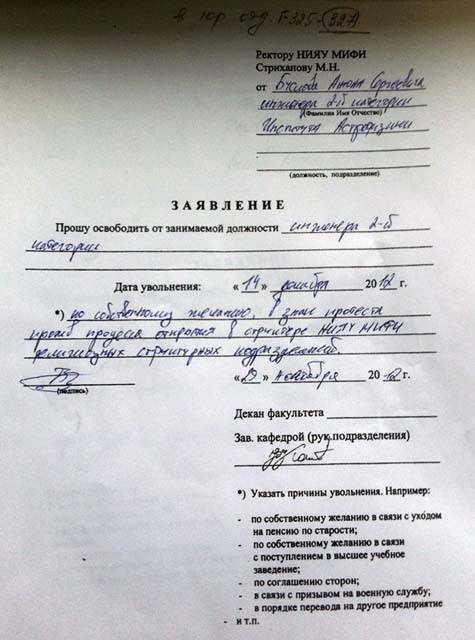 в юр отд. Г-325-(327)
Ректору НИЯУ МИФИ
Стриханову М.Н.
от Буслова Антона Сергеевича
инженера 2-й категории
(Фамилия Имя Отчество)
Института Астрофизики
(должность, подразделение)
ЗАЯВЛЕНИЕ
Прошу освободить от занимаемой должности инженера 2-й
категории
Дата увольнения: « 14 » декабря 2012 г.
*) по собственному желанию, в знак протеста
против процесса открытия в структуре НИЯУ МИФИ
религиозных структурных подразделений.
« 29 » ноября 2012 г.
(подпись)
Декан факультета
Зав. кафедрой (рук.подразделения)
*) Указать причины увольнения. Например:
- по собственному желанию в связи с уходом
на пенсию по старости;
- по собственному желанию в связи
с поступлением в высшее учебное
заведение;
- по соглашению сторон;
- в связи с призывом на военную службу;
- в порядке перевода на другое предприятие
- и т.п.